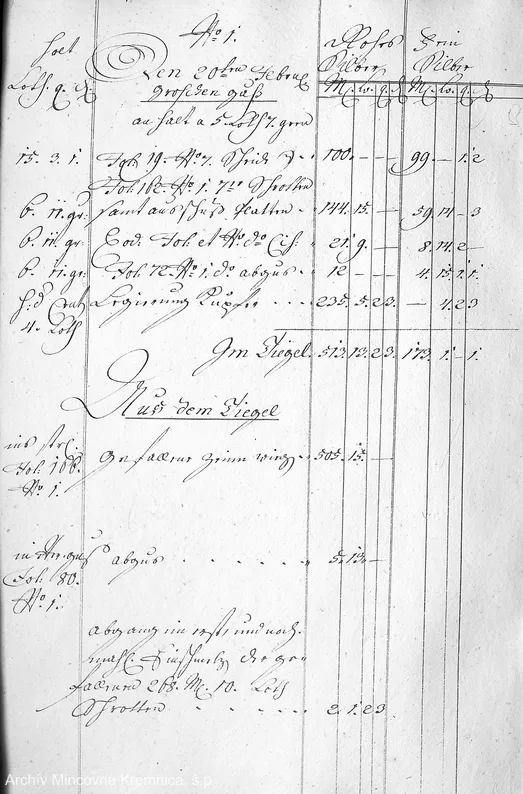 No 1.
Rohes Fein
halt Silber Silber
Loth. q. d Den 20ten Febru M. Lo. q. d M. Lo. q. d
Groschen Guß
an halt a 5 Loth 7. gren
15. 3. 1. Fol. 19. No 7. Scheid 100. — — — 99. — 1. 2
Fol. 162. No 1. Schrotten
6. 11. gr: samt ausschuss Platten 144. 15. — — 59. 14 — 3
6. 11. gr. Eod. Fol. et No do Cis: 21. 9. — — 8. 14. 2 —
6. 11. gr: Fol. 72. No 1. do abgus 12 — — — 4. 15. 1. 1.
Legierung Kupfer 235. 5. 2 3. — 4. 2 3
4. Loth
Im Tiegel. 513. 13. 2 3. 173. 1. — 1.
Aus dem Tiegel
ins
Fol. 106. gefallene 505. 15. —
No 1.
abgus 5. 13. —
Fol. 80.
No 1.
abgang im erst und noch
mahl. die ge
fallenen 268. M. 10. Loth
Schrotten 2. 1. 2 3
Archív Mincovne Kremnica, š.p.